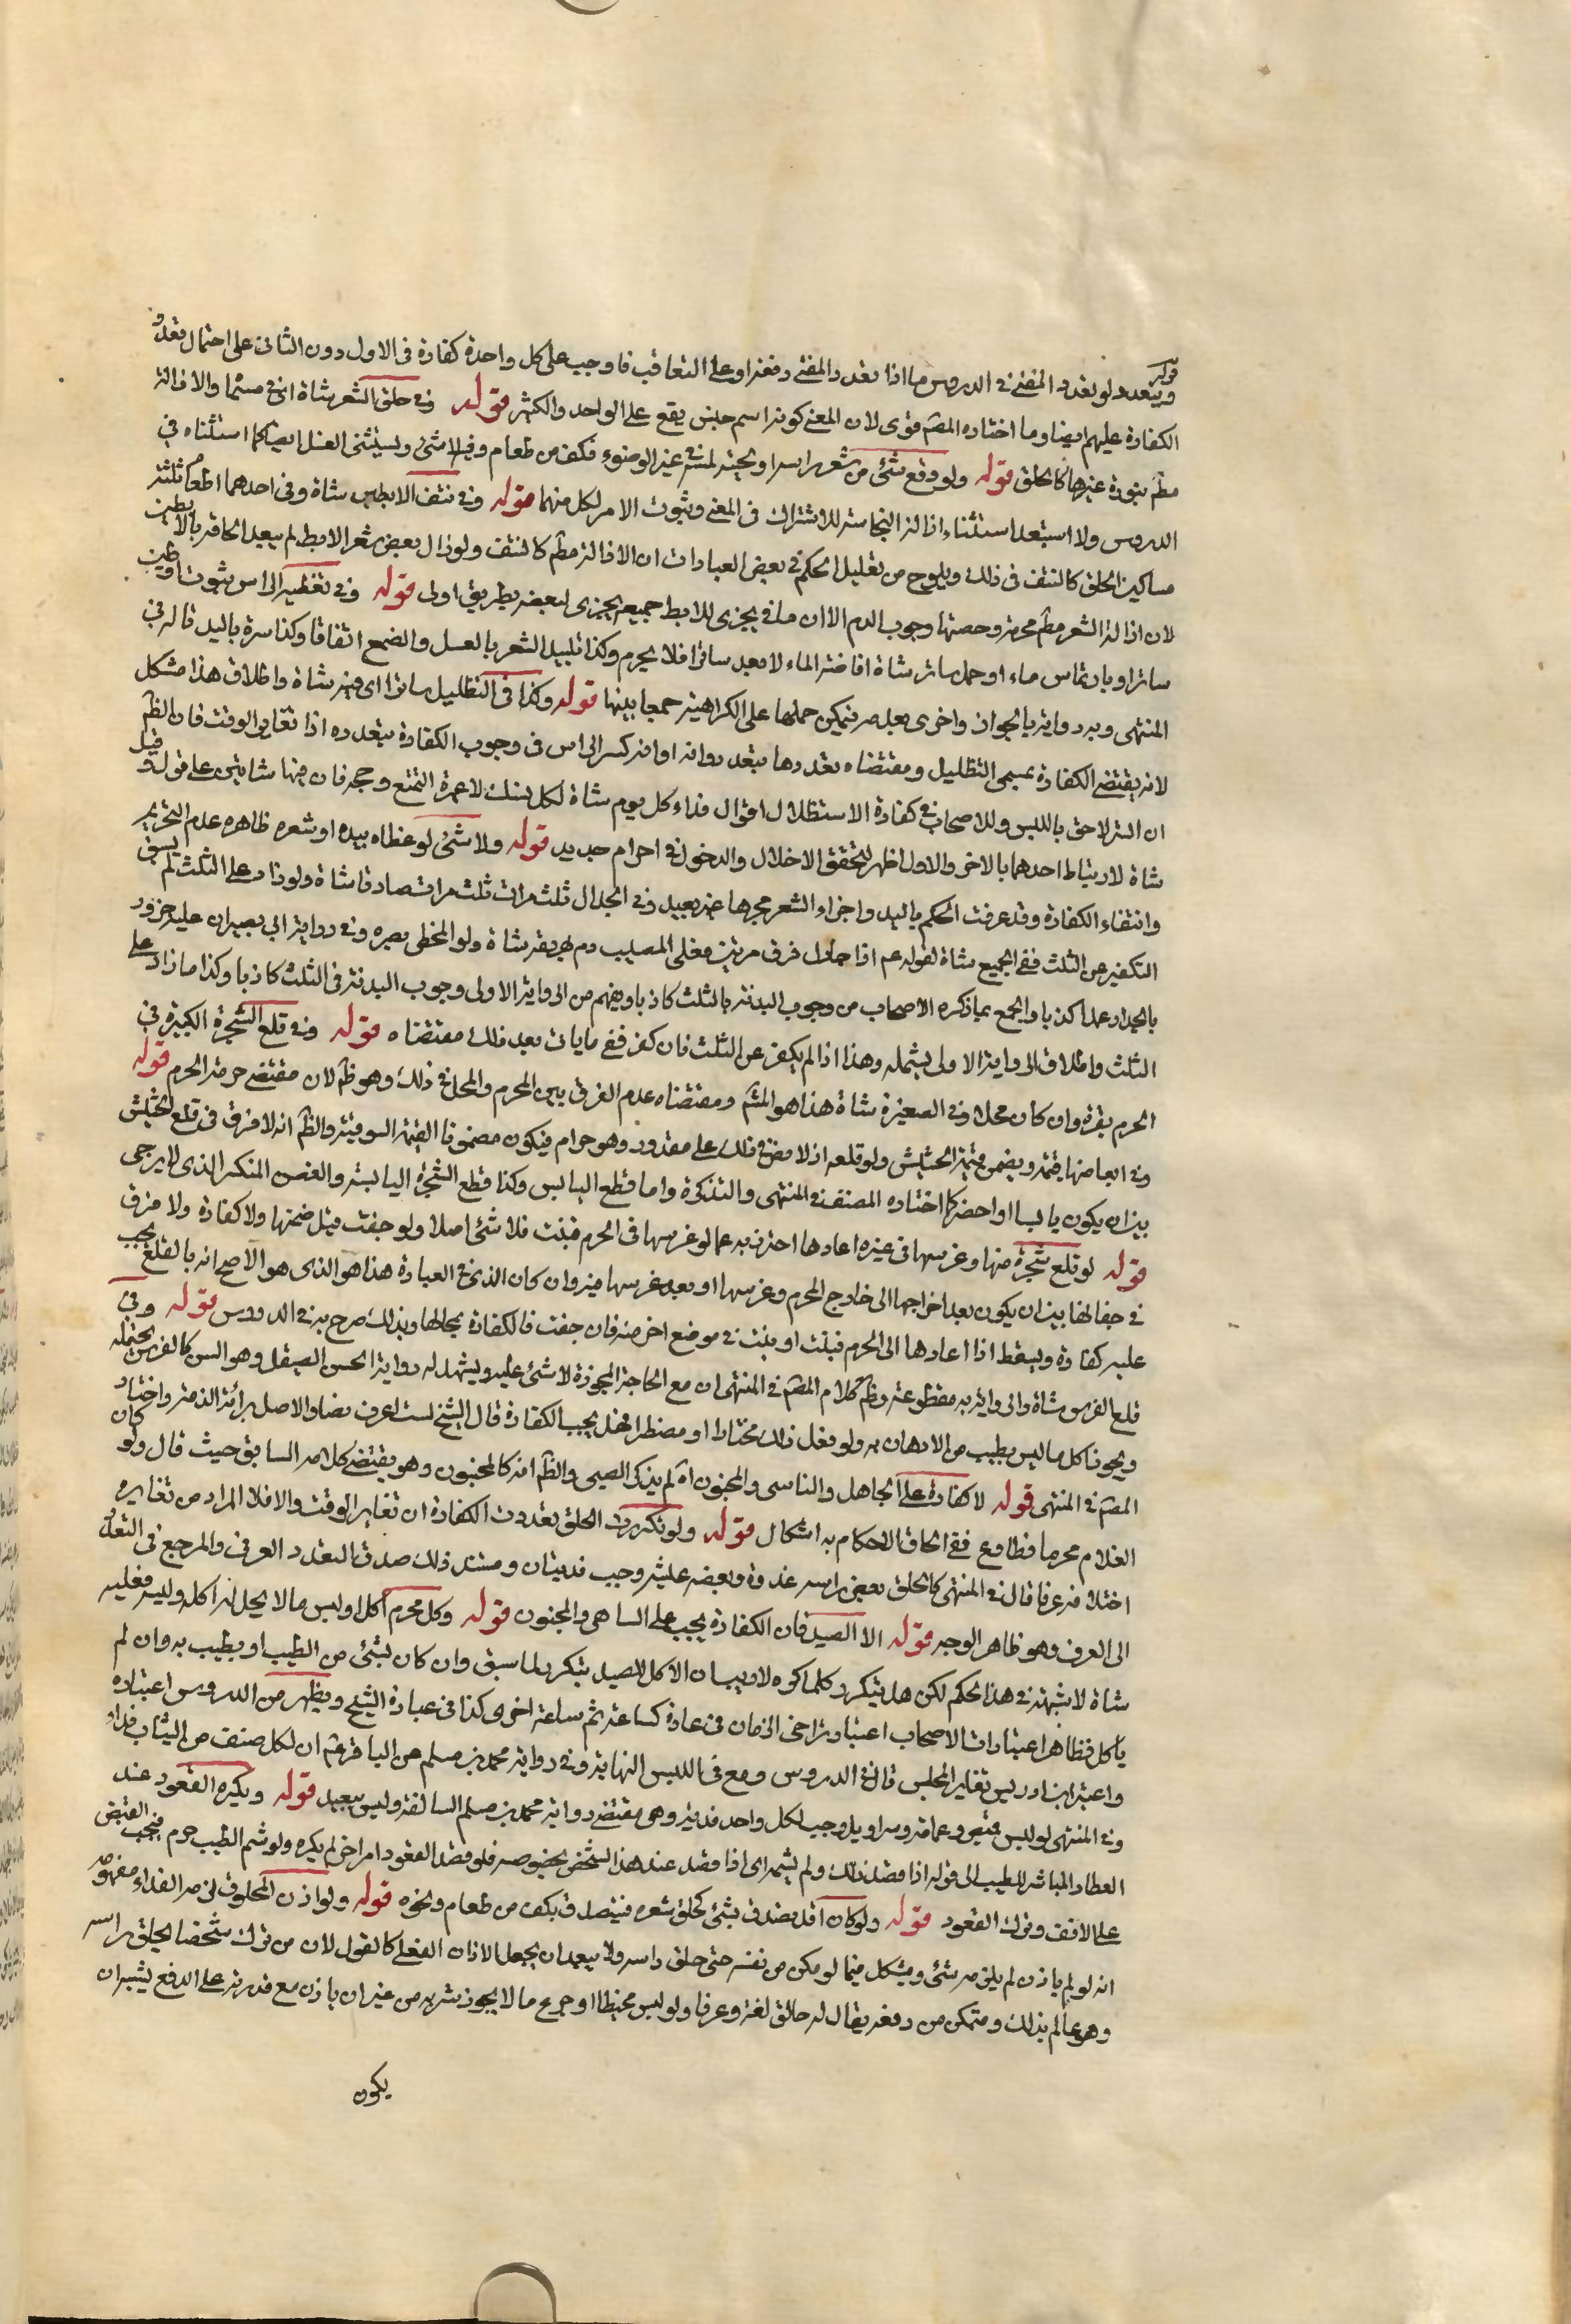 قوله
ويتعدد ولو تعدد المفتي في الدروس ما اذا تعدد المفتي دفعة او على التعاقب فاوجب على كل واحدة كفارة في الاول دون الثاني على احتمال تعدد
الكفارة عليهم ايضا وما اختاره المصَ قوى لان المفتي كونه اسم جنس يقع على الواحد والكثير قوله وفي حلق الشعر شاة اى مسمّاه والا فالتر
مطَ بنورة غيرها كالحلق قوله ولو وقع شئ من شعر راسه او لحيته لمسّه في غير الوضوء فكف من طعام وفيه لا شئ ويستثنى الغسل ايضا كما استثناه في
الدروس ولا استبعد استثناء ازالة النجاسة للاشتراك في المعنى وثبوت الامر لكل منهما قوله وفي نتف الابطين شاة وفي احدهما اطعام ثلثة
مساكين الحلق كالنتف في ذلك ويلوح من تعليل الحكم في بعض العبارات ان الازالة مطَ كالنتف ولو ازال بعض شعر الابط لم يبعد الحاقه بالابطين
لان ازالة الشعر مطَ محرمة وحصتها وجوب الدم الا ان ما في يجزى للابط جميعه يجزى لبعضه بطريق اولى قوله وفي تغطية الراس بثوب او طين
ساترا وبارتماس ماء او حمل ساتر شاة افاضة الماء لا يعد ساترا فلا يحرم وكذا تلبيد الشعر بالعسل والضمع اتفاقا وكذا ستره باليد قاله في
المنتهى وبه رواية بالجواز واخرى بعدمه فيمكن حملها على الكراهية جمعا بينها قوله وكذا في التظليل سائرا اى فيه شاة واطلاق هذا مشكل
لانه يقتضي الكفارة بمسمى التظليل ومقتضاه تعددها بتعدده وانه اوانه كستر الراس في وجوب الكفارة بتعدده اذا تغاير الوقت فان الظَ
ان الستر لاحق باللبس وللاصحاب في كفارة الاستظلال اقوال فداء كل يوم شاة لكل نسك لاعمرة التمتع وحجه فان فيها شاتين على قول وقيل
شاة لارتباط احدهما بالاخر والاول اظهر لتحقق الاخلال والدخول في احرام جديد قوله ولا شئ لو غطاه بيده او شعره ظاهره عدم التحريم
وانتفاء الكفارة وقد عرفت الحكم باليد واجزاء الشعر مجراها غير بعيد وفي الجدال ثلث مرات ثلث مرات صادقا شاة ولو زاد على الثلث لم يسبق
التكفير عن الثلث ففي الجميع شاة لقوله عم اذا جادل فوق مرتين فعلى المصيب دم يهريقه شاة ولو المخطى بقره وفي رواية ابي بصير ان عليه جزور
بالجدال عمدا كذبا والجمع بما ذكره الاصحاب من وجوب البدنة بالثلث كاذبا ويفهم من الرواية الاولى وجوب البدنة في الثلث كاذبا وكذا ما زاد على
الثلث واطلاق الرواية الاولى يشمله وهذا اذا لم يكفر عن الثلث فان كفر ففي ما ياتى بعد ذلك مقتضاه قوله وفي قلع الشجرة الكبيرة في
الحرم بقرة وان كان محلا وفي الصغيرة شاة هذا هو المشَ ومقتضاه عدم الفرق بين المحرم والمحل في ذلك وهو ظَ لان مقتضى حرمة الحرم قوله
وفي ابعاضها قيمة ويضمن قيمة الحشيش ولو قلعه اذ لا نص في ذلك على مقدور وهو حرام فيكون مضمونا القيمة السوقية والظَ انه لا فرق في قلع الحشيش
بين ان يكون يابسا او اخضر كما اختاره المصنف في المنتهى والتذكرة واما قطع اليابس وكذا قطع الشجرة اليابسة والغصن المنكسر الذى لا يرجى
قوله لو قلع شجرة منها وغرسها في غيره اعادها احترز به عما لو غرسها في الحرم فنبت فلا شئ اصلا ولو جفت قيل ضمنها ولا كفارة ولا فرق
في جفافها بين ان يكون بعد اخراجها الى خارج الحرم وغرسها او بعد غرسها فيه وان كان الذى في العبارة هذا هو الذى هو الاصح انه بالقلع يجب
عليه كفارة ويسقط اذا اعادها الى الحرم فنبتت او نبتت في موضع اخر منه فان جفت فالكفارة بحالها وبذلك صرح به في الدروس قوله وفي
قلع الضرس شاة والرواية به مقطوعة وظَ كلام المصَ في المنتهى ان مع الحاجة المجوزة لا شئ عليه ويشهد له رواية الحسن الصيقل وهو السن كالضرس يحتمله
ويجوز اكل ما ليس بطيب من الادهان به ولو فعل ذلك مختارا او مضطرا فهل يجب الكفارة قال الشيخ لست اعرف نصا والاصل برائة الذمة واختار
المصَ في المنتهى قوله لا كفارة على الجاهل والناسى والمجنون آه لم يذكر الصبى والظَ انه كالمجنون وهو يقتضى كلامه السابق حيث قال ولو كان
الغلام محرما فطاوع ففي الحاق الاحكام به اشكال قوله ولو تكرر الحلق تعددت الكفارة ان تغاير الوقت والا فلا المراد من تغايره
اختلافه عرفا قال في المنتهى كما لو حلق بعض راسه غدوة وبعضه عشية وجب فديتان ومستند ذلك صدق التعدد العرفى والمرجع في التعدد
الى العرف وهو ظاهر الوجه قوله الا الصيد فان الكفارة يجب على الساهى والمجنون قوله وكل محرم اكل او لبس ما لا يحل له اكله ولبسه فعليه
شاة لا شبهة في هذا الحكم لكن هل يتكرر كلما كرره لا ريب ان الاكل للصيد يتكرر لما سبق وان كان بشئ من الطيب او يطيب به وان لم
ياكل فظاهر اعتبارات الاصحاب اعتبار تراخى الزمان في عادة كساعة ثم ساعة اخرى كذا في عبارة الشيخ ويظهر من الدروس اعتباره
واعتبر ابن ادريس تغاير المجلس قال في الدروس ومع في اللبس النهاية وفي رواية محمد بن مسلم عن الباقر عم ان لكل صنف من الثياب فداء
وفي المنتهى لو لبس قميص وعمامة وسراويل وجب لكل واحد فدية وهو مقتضى رواية محمد بن مسلم السالفة وليس ببعيد قوله ويكره القعود عند
العطار المباشر للطيب الى قوله اذا قصد ذلك ولم يشمه اى اذا قصد عند هذا الشخص بخصوصه فلو قصد القعود امرا اخر لم يكره ولو شم الطيب حرم فيجب القبض
على الانف وترك القعود قوله ولو كان آه تصدق بشئ كحلق شعره فيتصدق بكف من طعام ونحوه قوله ولو اذن المحلوق لزمه الفداء مفهومه
انه لو لم ياذن لم يلزمه شئ ويشكل فيما لو مكن من نفسه حتى حلق راسه ولا يبعد ان يجعل الاذان الفعلى كالقول لان من ترك شخصا يحلق راسه
وهو عالم بذلك ومتمكن من دفعه يقال له حالق لغة وعرفا ولو لبس مخيطا او جرع ما لا يجوز شربه من غير ان ياذن مع قدرته على الدفع يشبه ان
يكون